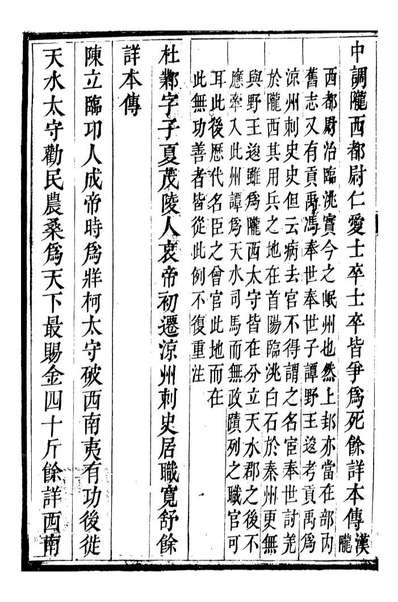 中調隴西都尉仁愛士卒士卒皆爭爲死餘詳本傳漢隴
西都尉治臨洮實今之岷州也然上邽亦當在部內
舊志又有貢禹馮奉世奉世子譚野王逡考貢禹爲
涼州刺史史但云病去官不得謂之名宦奉世討羌
於隴西其用兵之地在首陽臨洮白石於秦州更無
與野王逡雖爲隴西太守皆在分立天水郡之後不
應牽入此州譚爲天水司馬而無政蹟列之職官可
耳此後歷代名臣之曾官此地而在
此無功善者皆從此例不復重注
杜鄴字子夏茂陵人哀帝初遷涼州刺史居職寬舒餘
詳本傳
陳立臨邛人成帝時爲牂柯太守破西南夷有功後徙
天水太守勸民農桑爲天下最賜金四十斤餘詳西南